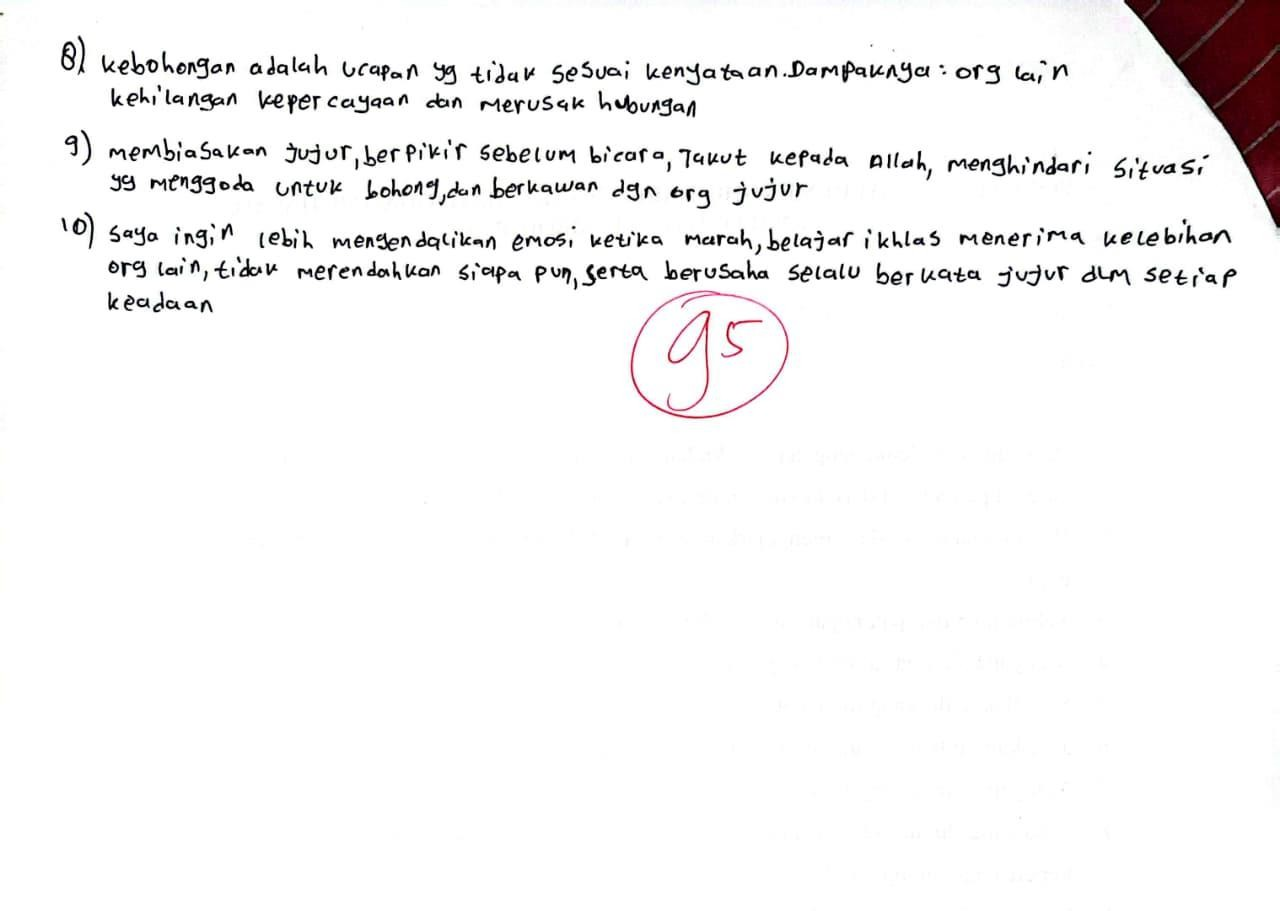 8) kebohongan adalah ucapan yg tidak sesuai kenyataan. Dampaknya : org lain
kehilangan kepercayaan dan merusak hubungan
9) membiasakan jujur, berpikir sebelum bicara, Takut kepada Allah, menghindari situasi
yg menggoda untuk bohong, dan berkawan dgn org jujur
10) saya ingin lebih mengendalikan emosi ketika marah, belajar ikhlas menerima kelebihan
org lain, tidak merendahkan siapa pun, serta berusaha selalu berkata jujur dlm setiap
keadaan
95